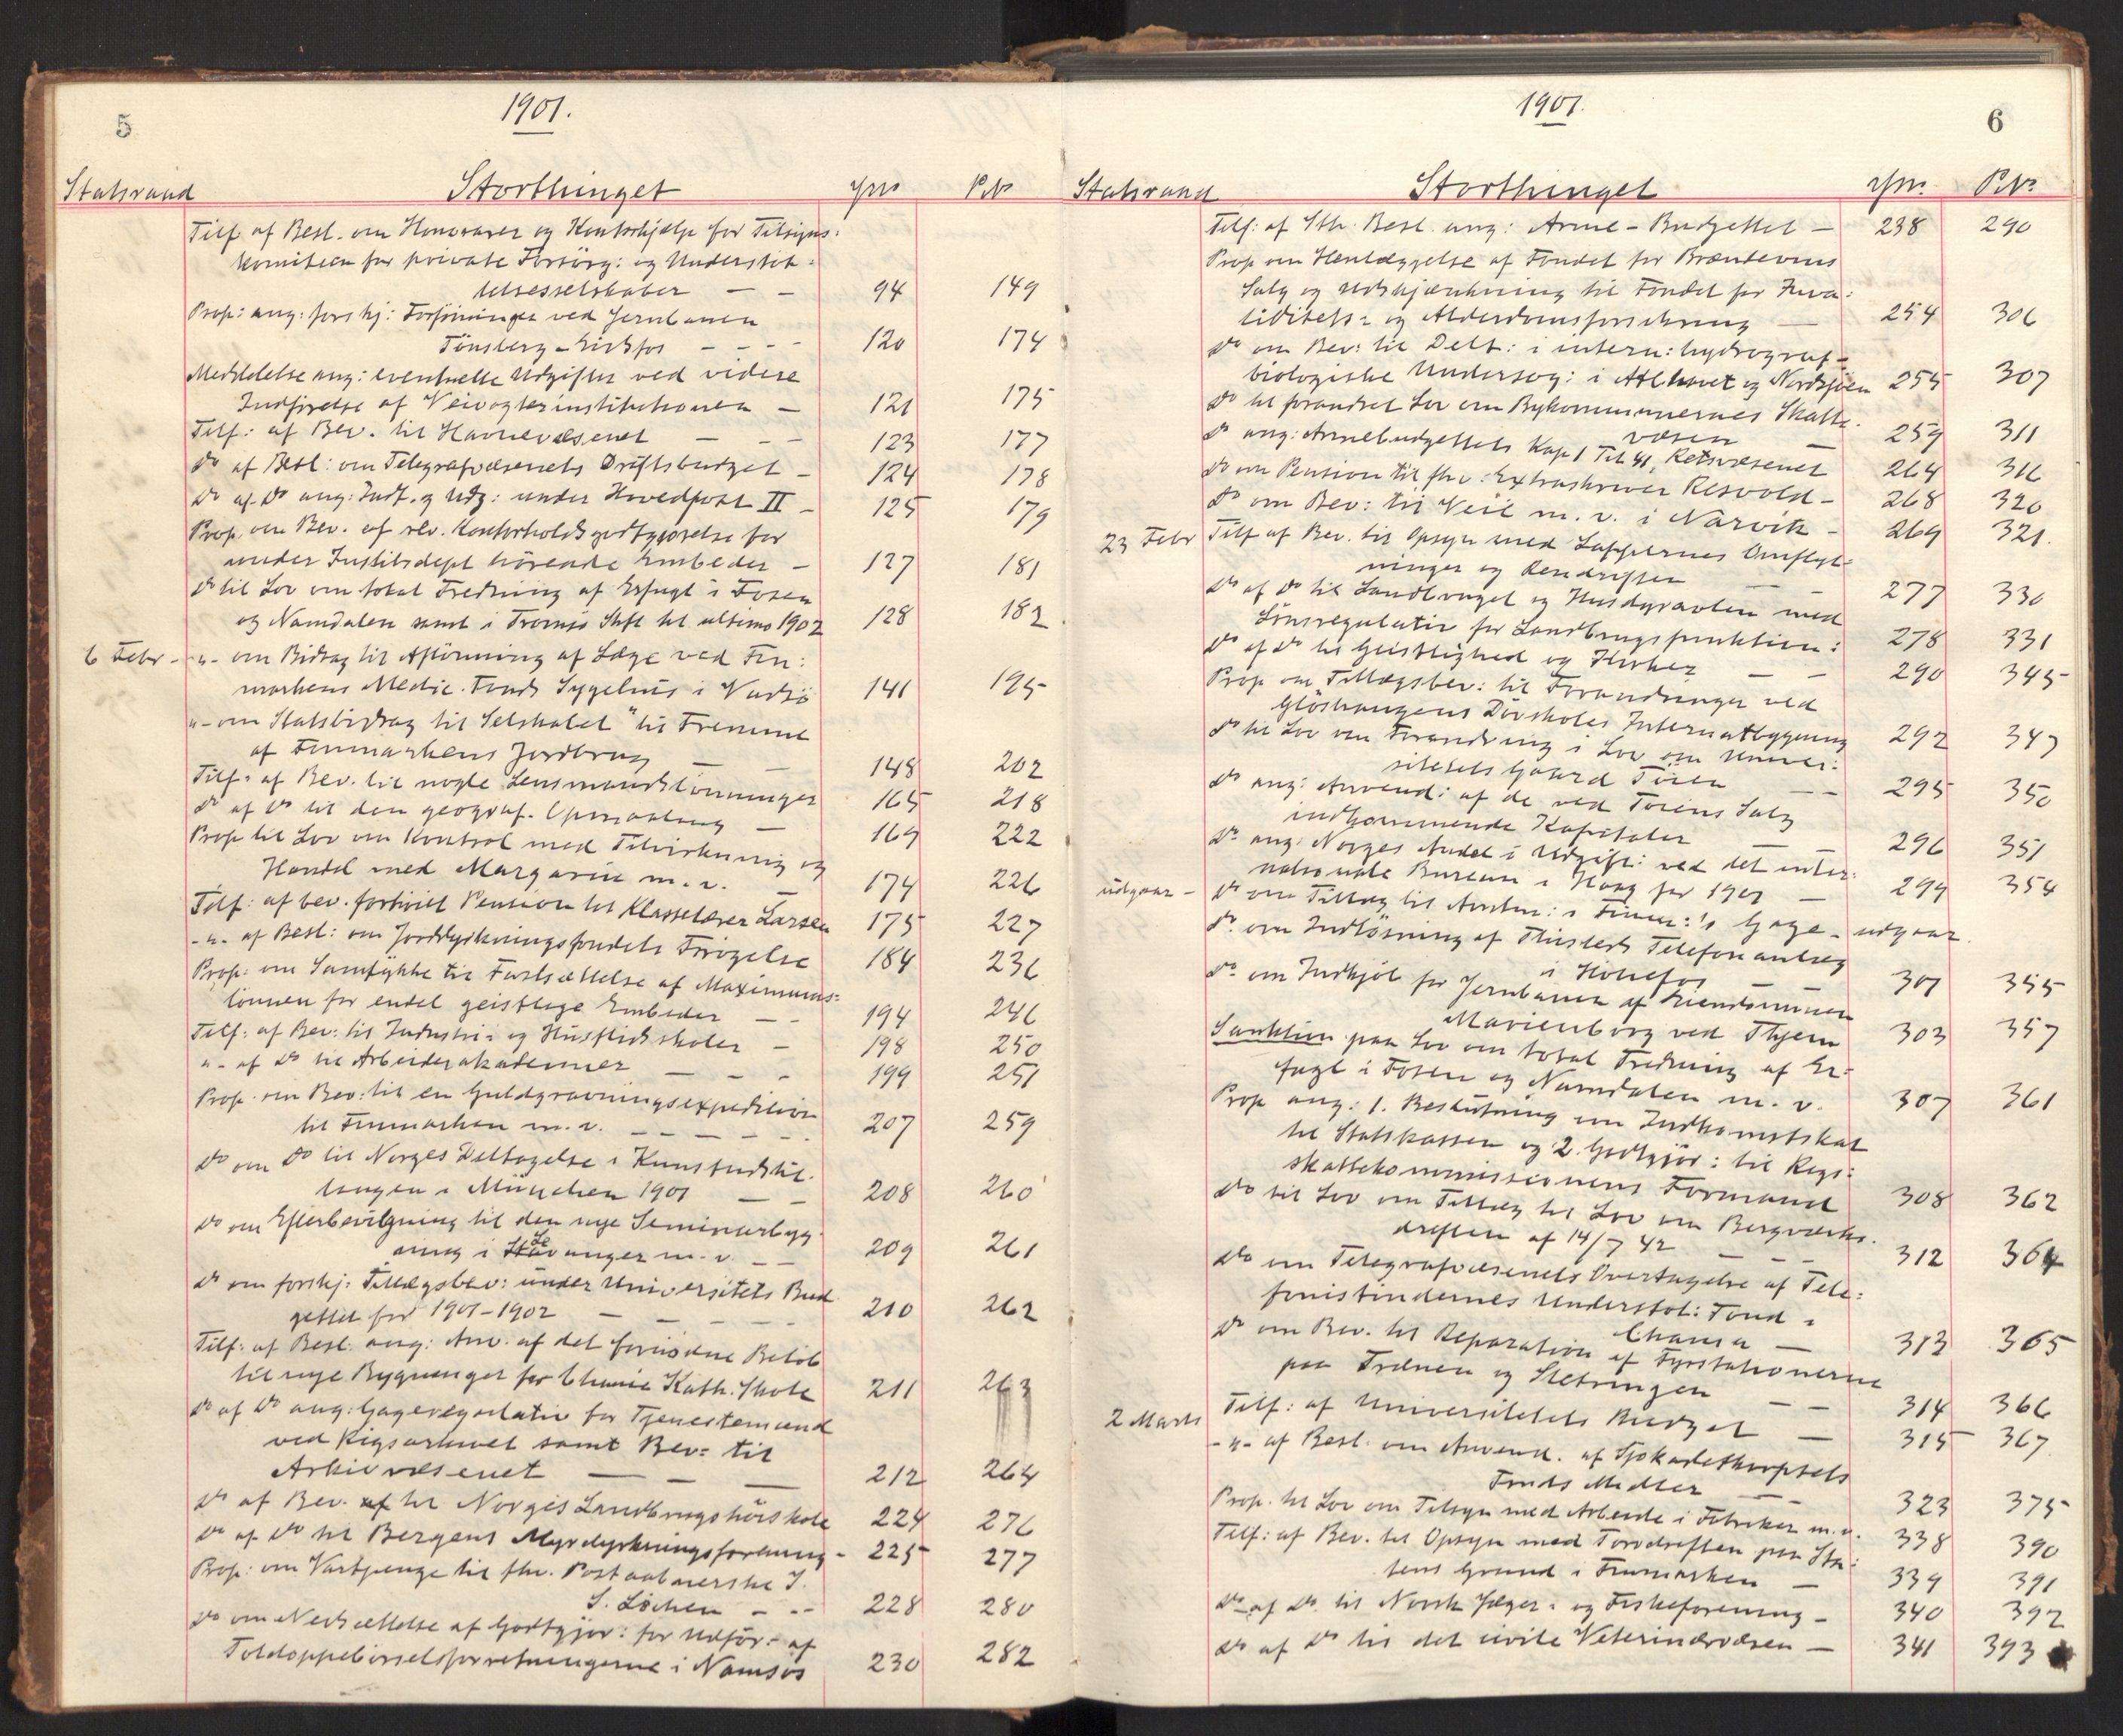 5
1901.
Statsraad Storthinget PNo
Tilf. af Besl. om Honorarer og Kontorhjælp for Tilsyns:
komiteen for private Forsörg: og Understöt:
telsesselskaber — — 94 149
Prop: ang: forskj: Forföininger ved Jernbanen
Tönsberg - Eidsfos - - - - 120 174
Meddelelse ang: eventuelle Udgifter ved videre
Indförelse af Veivogterinstitutionen — 121 175
Tilf: af Bev. til Havnevæsenet — - - 123 177
Do af Besl: om Telegrafvæsenets Driftsbudget — 124 178
Do af Do ang: Indt. og Udg: under Hovedpost II — 125 179
Prop. om Bev. af Kontorholdsgodtgjörelse for
under Justitsdept hörende Embeder — 127 181
Do til Lov om total Fredning af Erfugl i Fosen
og Namdalen samt i Tromsö Stift til ultimo 1902 128 182
6 Febr - -"- om Bidrag til Aflönning af Læge ved Fin:
markens Medic. Fonds Sygehus i Vadsö 141 195
"- om Statsbidrag til Selskabet "til Fremme
af Finmarkens Jordbrug — — 148 202
Tilf: af Bev. til nogle Lensmandslönninger 165 218
Do af Do til den geograf. Opmaaling — 169 222
Prop til Lov om Kontrol med Tilvirkning og
Handel med Margarin m. v. — 174 226
Tilf: af bev. forhöiet Pension til Klasselærer Larsen 175 227
-"- af Besl: om Jorddyrkningsfondets Forögelse 184 236
Prop: om Samtykke til Fastsættelse af Maximums:
lönnen for endel geistlige Embeder — - 194 246
Tilf: af Bev: til Industri- og Husflidsskoler — 198 250
"- af Do til Arbeiderakademier — - - 199 251
Prop. om Bev: til en Guldgravningsexpedition
til Finmarken m. v. - - - - - 207 259
Do om Do til Norges Deltagelse i Kunstudstil:
lingen i München 1901 — - 208 260
Do om Efterbevilgning til den nye Seminarbyg
ning i Levanger m. v. - - 209 261
Do om forskj: Tillægsbev: under Universitets Bud
gettet for 1901-1902 — - - - 210 262
Tilf: af Besl. ang: Anv. af det fornödne Belöb
til nye Bygninger for Chania Kath. Skole 211 263
Do af Do ang: Gageregulativ for Tjenestemænd
ved Rigsarkivet samt Bev: til
Arkivvæsenet — — — 212 264
Do af Bev. til Norges Landbrugshöiskole 224 276
Do af Do til Bergens Myrdyrkningsforening - 225 277
Prop: om Vartpenge til fhv. Postaabnerske J.
S. Löchen - -- 228 280
Do om Nedsættelse af Godtgjör: for Udför: af
Toldoppebörselsforretningerne i Namsos 230 282
1901.
6
Statsraad Storthinget PNo
Tilf: af Sth. Besl. ang: Arme-Budgettet — 238 290
Prop om Henlæggelse af Fondet for Brændevins
Salg og Udskjænkning til Fondet for Inva:
liditets- og Alderdomsforsikring — 254 306
Do om Bev: til Delt: i intern: hydrograf-
biologiske Undersög: i Atlhavet og Nordsjöen 255 307
Do til forandret Lov om Bykommunernes Skatte:
væsen — 259 311
Do ang: Armebudgettets Kap 1 Tit 41, Retsvæsenet 264 316
Do om Pension til fhv: Extraskriver Resvold — 268 320
Do om Bev: til Veie m. v. i Narvik - 269 321.
23 Febr Tilf af Bev. til Opsyn med Lappernes Omflyt:
ninger og Rendriften — 277 330
Do af Do til Landbruget og Husdyravlen med
Lönsregulativ for Landbrugsfunktion: 278 331
Do af Do til Geistlighed og Kirker — - 290 345
Prop om Tillægsbev: til Forandringer ved
Glöshaugens Dövskoles Internatbygning 292 347
Do til Lov om Forandring i Lov om Univer:
sitetets Gaard Töien — - 295 350
Do ang: Anvend: af de ved Töiens Salg
indkommende Kapitaler 296 351
Do ang: Norges Andel i Udgift: ved det inter:
nationale Bureau i Haag for 1901 — 299 354
udgaar - Do om Tillæg til Amtm: i Finm:'s Gage - udgaar.
Do om Indlösning af Thisteds Telefonanlæg
i Hönefos 301 355
Do om Indkjöb for Jernbanen af Eiendommen
Marienborg ved Thjem 303 357
Sanktion paa Lov om total Fredning af Er-
fugl i Fosen og Namdalen m. v. 307 361
Prop ang: 1. Beskatning om Indkomstskat
til Statskassen og 2. Godtgjör: til Rigs:
skattekommissionens Formand 308 362
Do til Lov om Tillæg til Lov om Bergværks:
driften af 14/7 42 — - 312 364
Do om Telegrafvæsenets Overtagelse af Tele:
fonistindernes Understöt: Fond i
Chania — 313 365
Do om Bev. til Reparation af Fyrstationerne
paa Trænen og Sletringen — - 314 366
2 Marts Tilf: af Universitetets Budget — 315 367
-"- af Besl. om Anvend. af Sjökadetkorpsets
Fonds Midler — 323 375
Prop. til Lov om Tilsyn med Arbeide i Fabriker m. v. 338 390
Tilf: af Bev. til Opsyn med Torvdriften paa Sta:
tens Grund i Finmarken — 339 391
Do af Do til Norsk Jæger- og Fiskeforening - 340 392
Do af Do til det civile Veterinærvæsen — 341 393